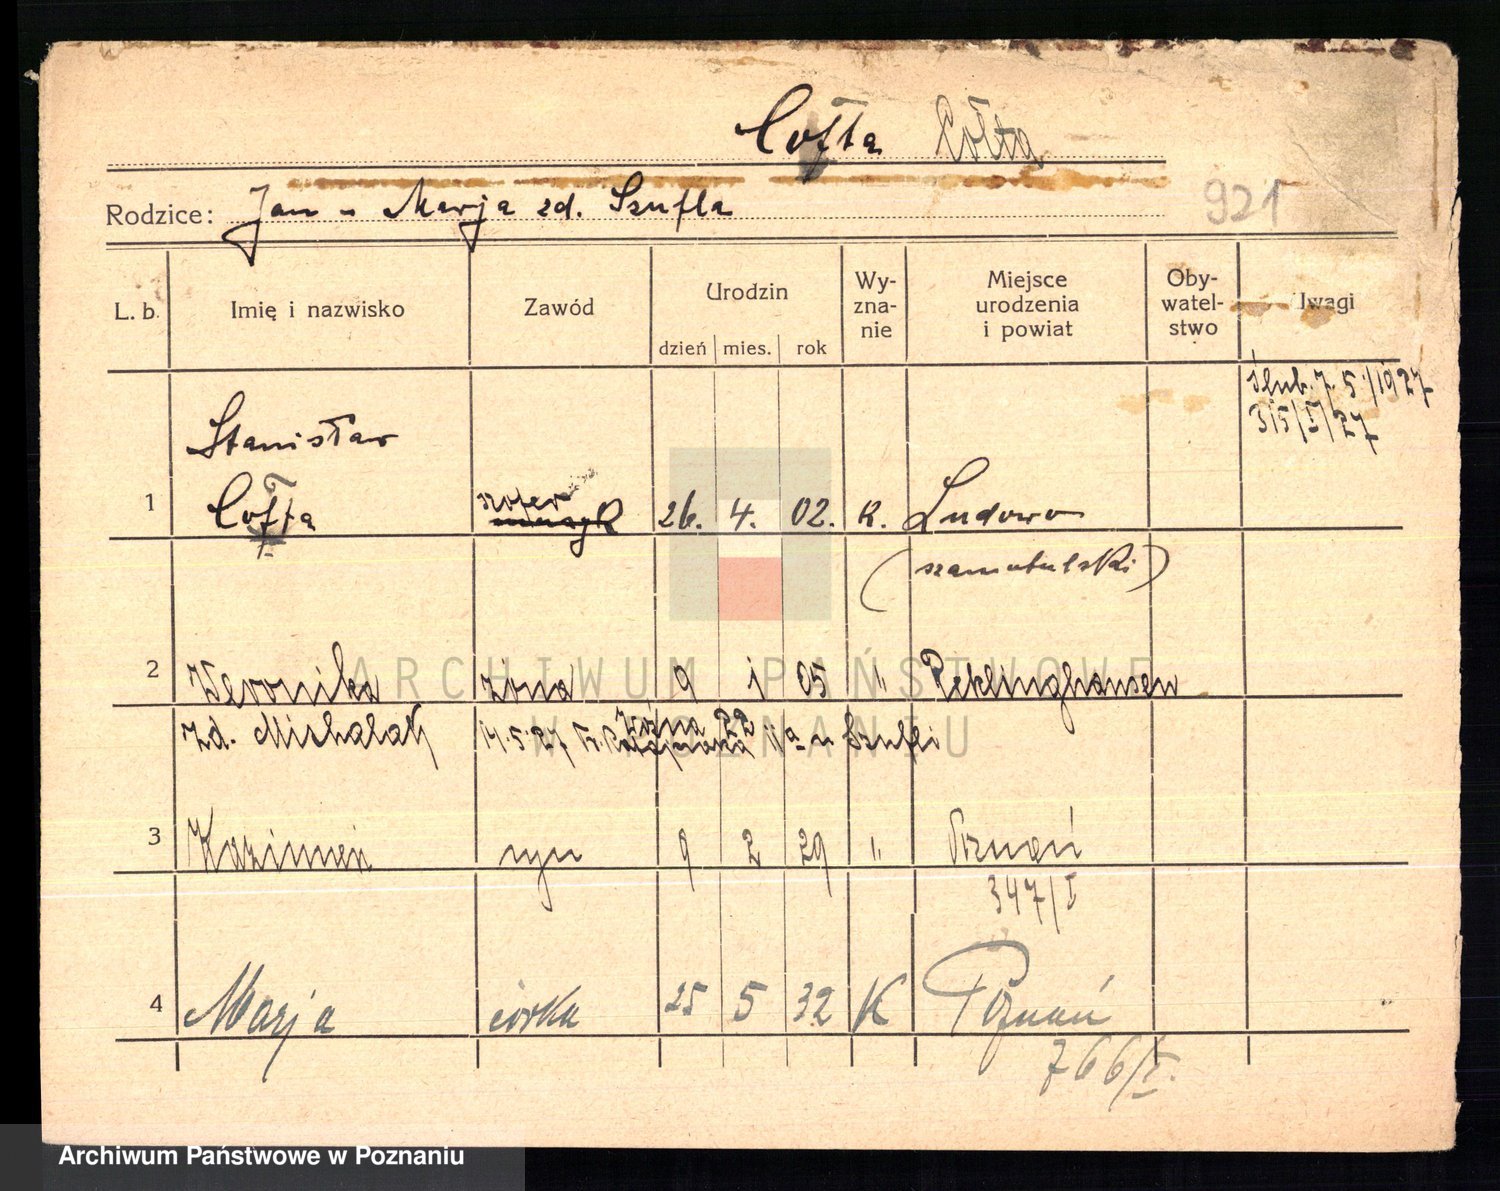 Cofta Cołta
921
Rodzice: Jan - Marja zd. Szufla
L. b. Imię i nazwisko Zawód Urodzin Wyznanie Miejsce urodzenia i powiat Obywatelstwo Uwagi
dzień mies. rok
ślub. 7. 5./1927
315/I/27
Stanisław
1 Cofta szofer 26. 4. 02. K. Ludowo
(szamotulski)
2 Weronika żona 9 1 05 " Reklinghausen
zd. Michalak 14.5.27 22 u Szufli
3 Kazimierz syn 9 2 29 " Poznań
347/I
4 Marja córka 25 5 32 K Poznań
766/I.
ARCHIWUM PAŃSTWOWE
W POZNANIU
Archiwum Państwowe w Poznaniu